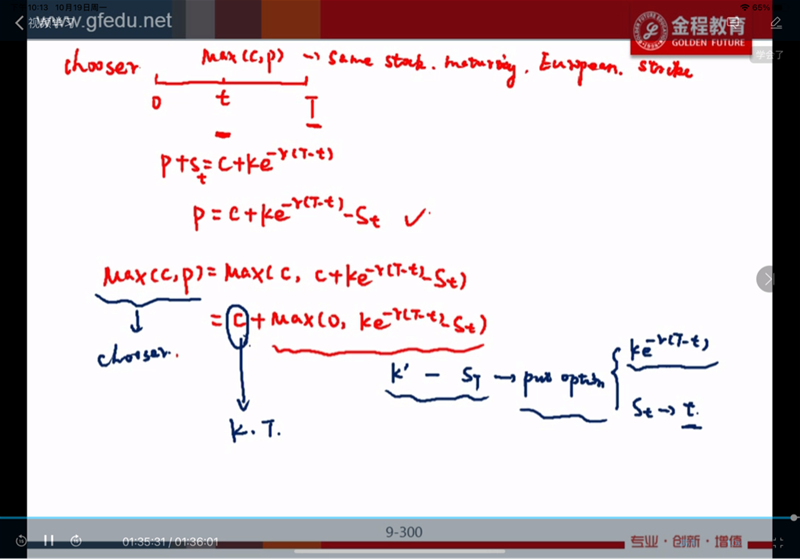 10:13 10月19日周一
65%
视频学习
www.gfedu.net
金程教育
GOLDEN FUTURE
学会了
chooser
Max(c,p) → same stock. maturing. European. strike
0 t T
P+St = C+Ke^-r(T-t)
P = C+Ke^-r(T-t)-St ✓
Max(c,p) = Max(C, C+Ke^-r(T-t)-St)
= C + Max(0, Ke^-r(T-t)-St)
chooser.
K' - ST → put option { Ke^-r(T-t)
St → t.
K. T.
9-300
01:35:31 / 01:36:01
专业·创新·增值